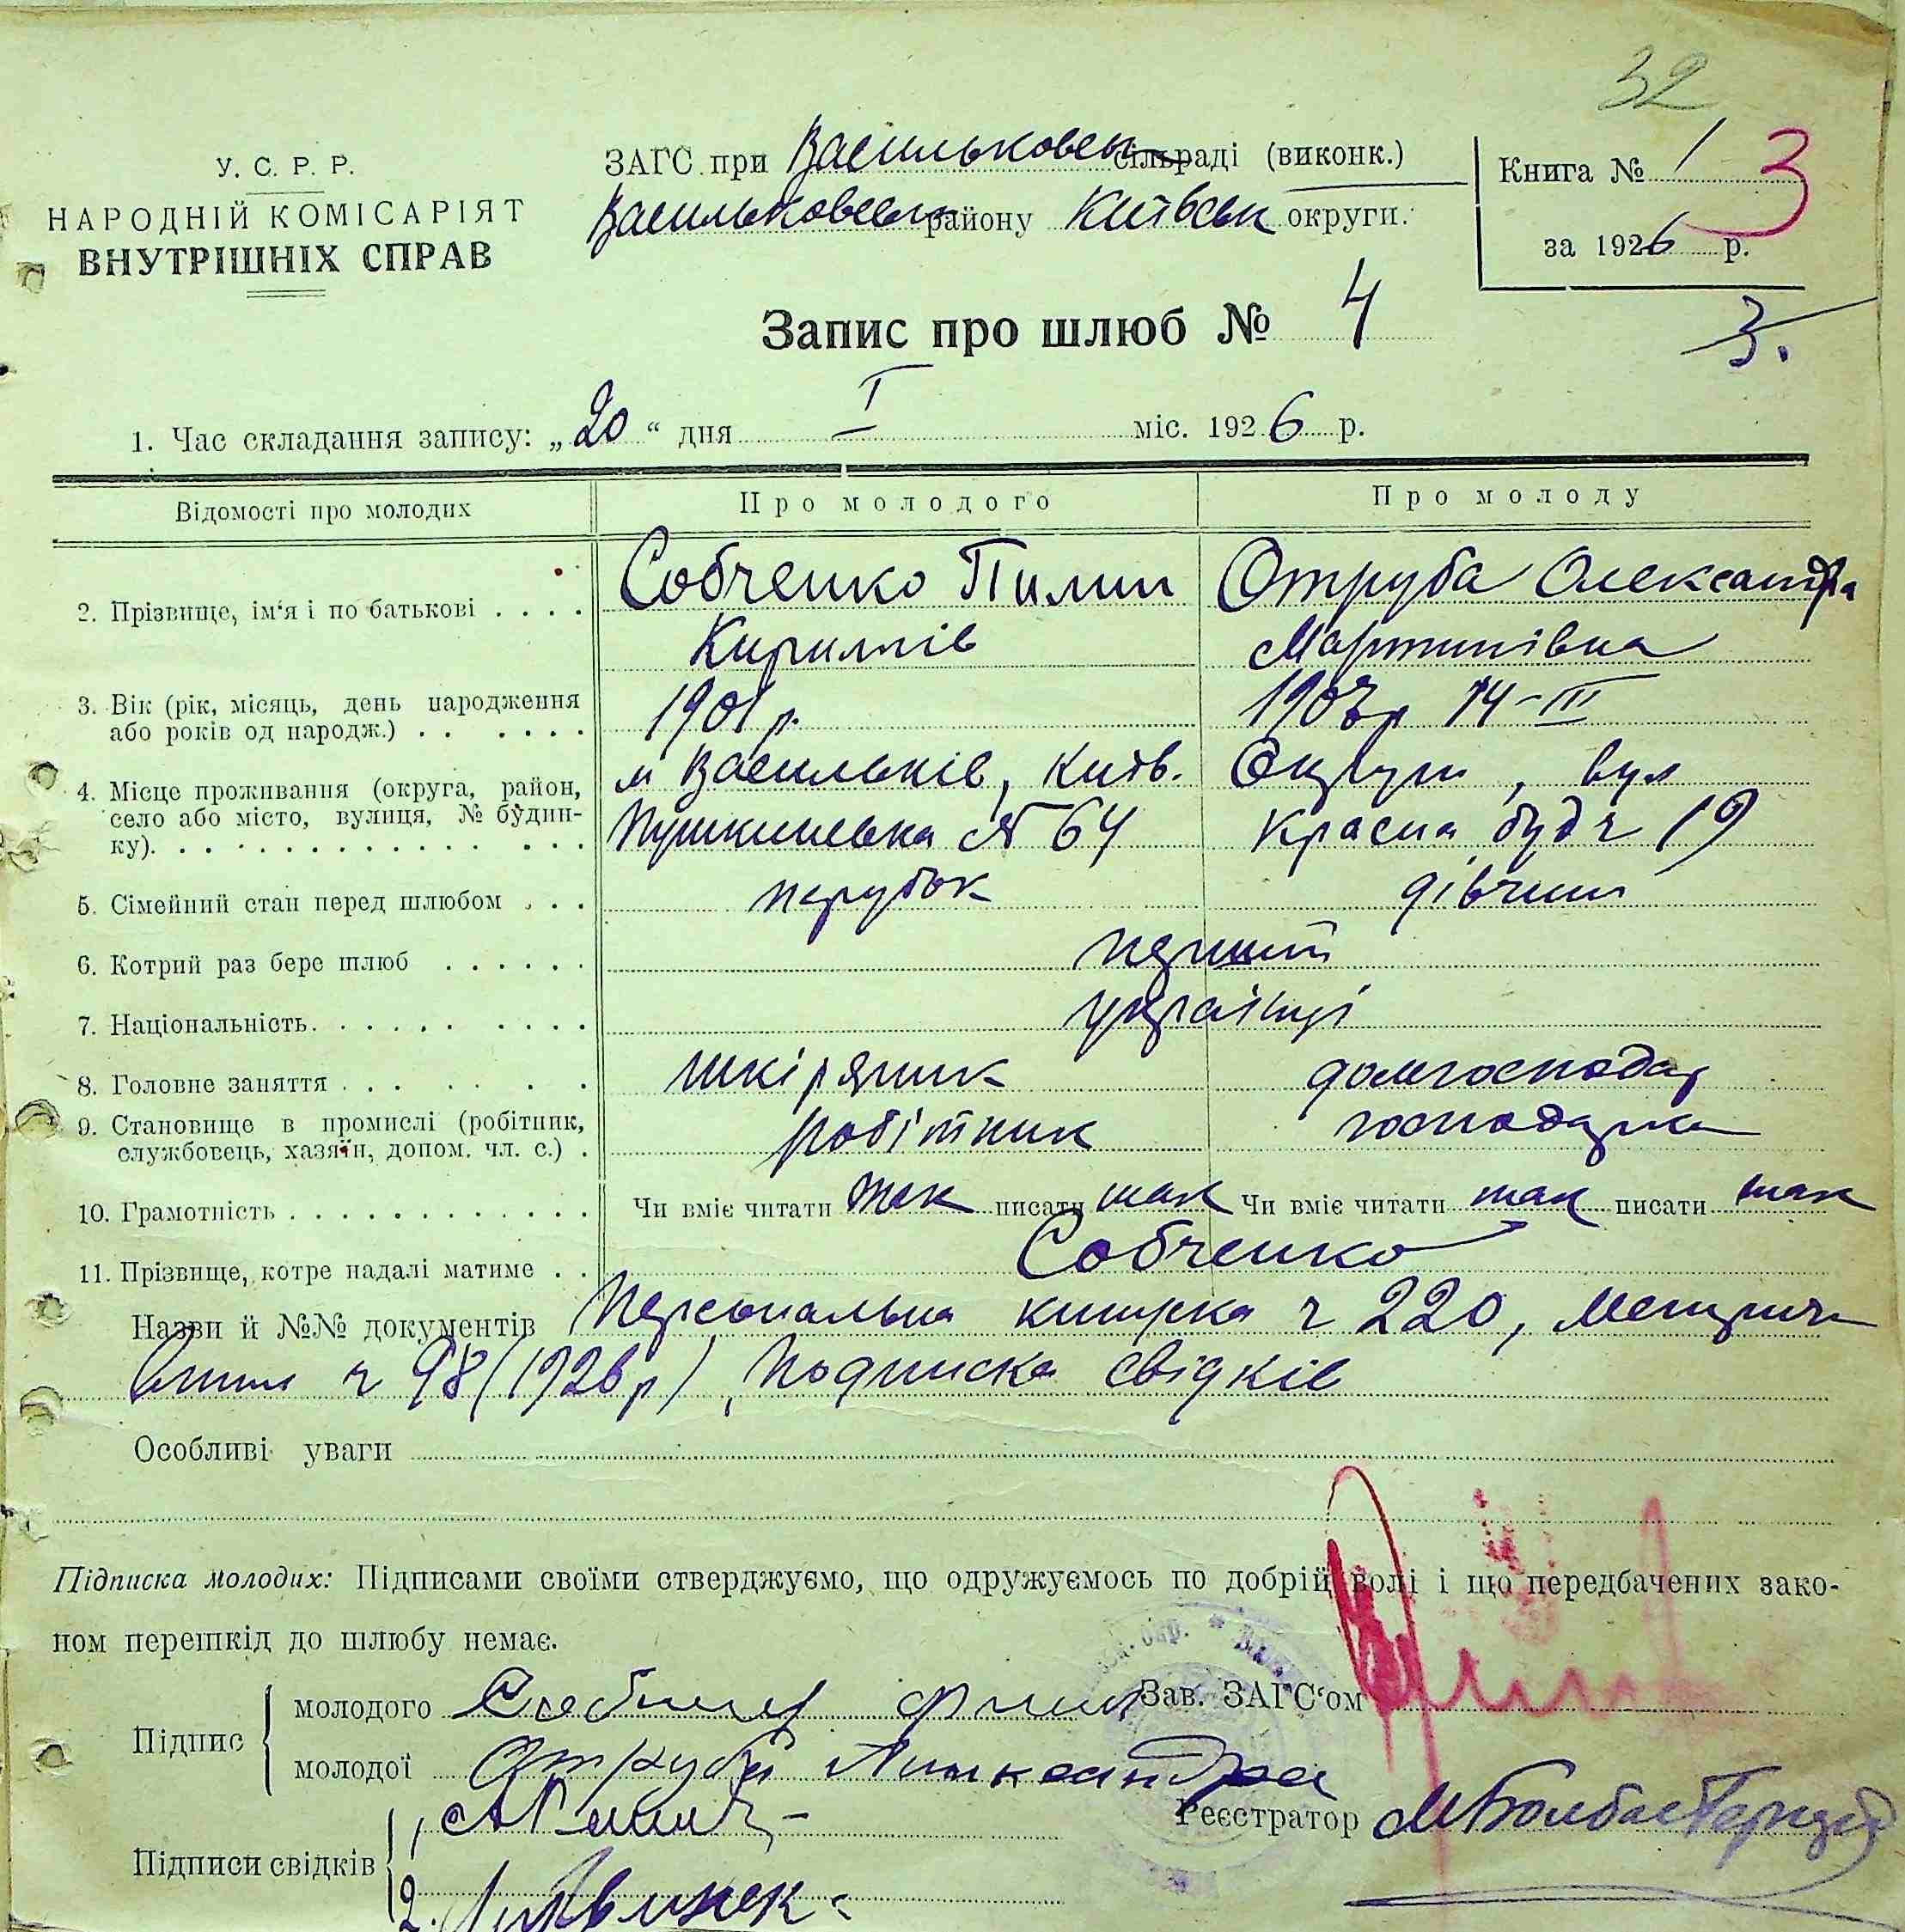 32
У. С. Р. Р.
НАРОДНІЙ КОМІСАРІЯТ
ВНУТРІШНІХ СПРАВ
ЗАГС при Васильковськ сільраді (виконк.)
Васильковськ району Київськ округи.
Книга № 1 3
за 1926 р.
Запис про шлюб № 4
3.
1. Час складання запису: „20“ дня I міс. 1926 р.
Відомості про молодих Про молодого Про молоду
2. Прізвище, ім'я і по батькові . . . . Собченко Пилип Отруба Олександра
Кирилів Мартинівна
3. Вік (рік, місяць, день народження 1901 р. 1907 р 14-III
або років од народж.) . . . . . .
4. Місце проживання (округа, район, м Васильків, Київ. Округи, вул
село або місто, вулиця, № будин- Пушкинська № 64 Красна буд ч 19
ку). . . . . . . . . . . . . . . .
5. Сімейний стан перед шлюбом . . . парубок дівчина
6. Котрий раз бере шлюб . . . . . . перший
7. Національність. . . . . . . . . . українці
8. Головне заняття . . . . . . . шкіряник домгосподар
9. Становище в промислі (робітник, робітник господарка
службовець, хазяїн, допом. чл. с.) .
10. Грамотність . . . . . . . . . . . . Чи вміє читати так писати так Чи вміє читати так писати так
11. Прізвище, котре надалі матиме . . Собченко
Назви й №№ документів Персональна книжка ч 220, Метрична
ч 98 (1926 р), Подписка свідків
Особливі уваги
Підписка молодих: Підписами своїми стверджуємо, що одружуємось по добрій волі і що передбачених зако-
ном перешкід до шлюбу немає.
Підпис
молодого Зав. ЗАГС'ом
молодої Отруба
Реєстратор
Підписи свідків
1,
2.